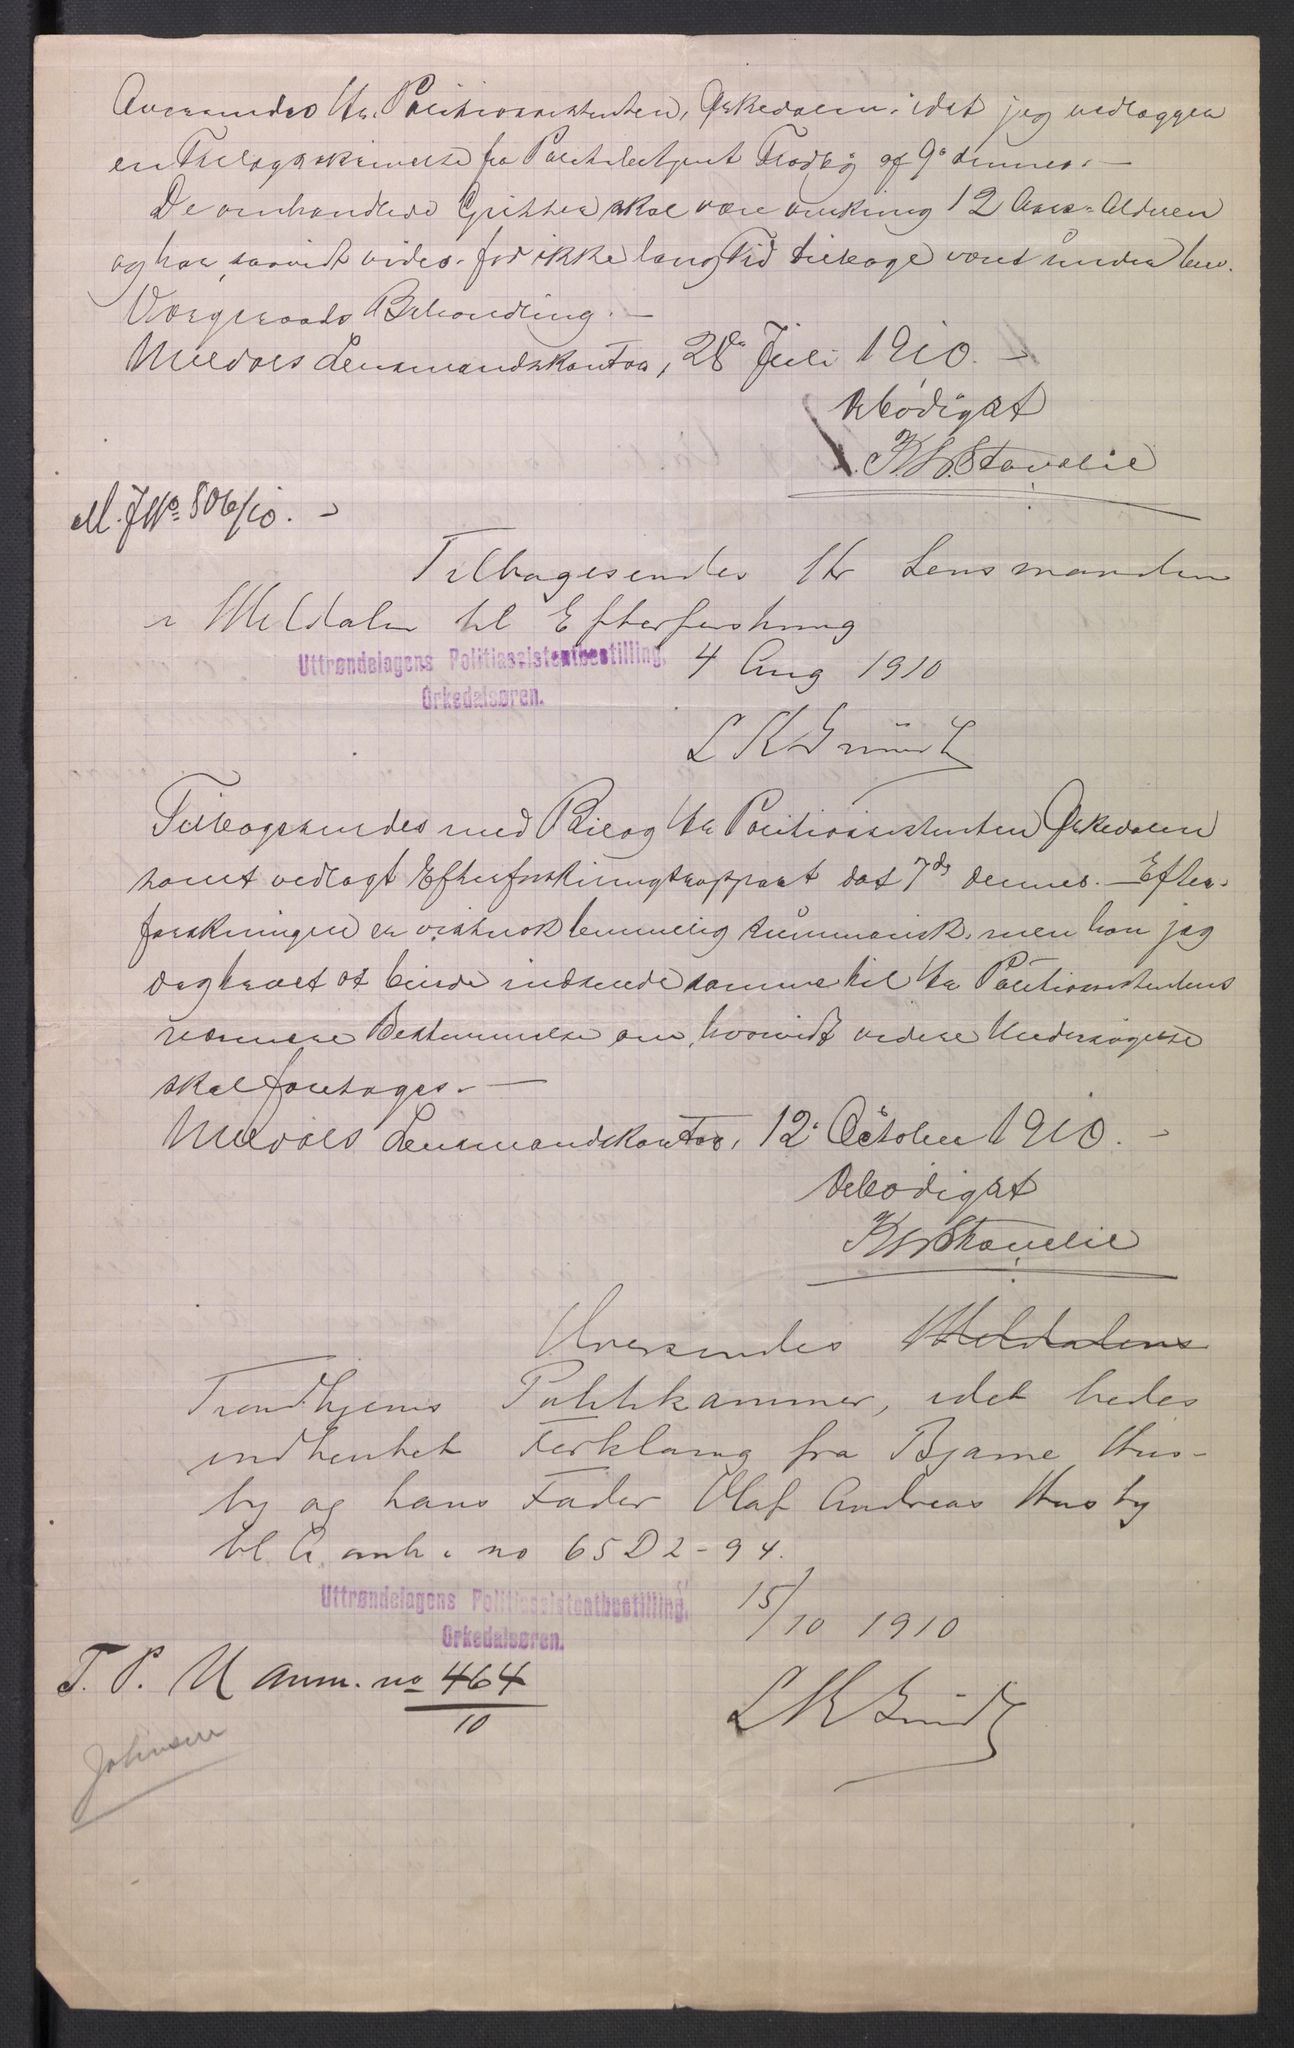 Oversendes Hr. Politiassistenten, Ørkedalen, idet jeg vedlægger
en Tillægsskrivelse fra Politibetjent af 9de dennes. —
De omhandlede Gutter skal være omkring 12 Aars-Alderen
og har saavidt vides for ikke lang Tid tilbage været under
Værgeraads Behandling. —
Meldals Lensmandskontor, 28de Juli 1910. —
Ærbødigst
M. J No 506/10. —
Tilbagesendes Hr Lensmanden
i Meldalen til Efterforskning
Uttrøndelagens Politiassistentbestilling, 4 Aug 1910
Orkedalsøren.
Tilbagesendes med Bilag Hr. Politiassistenten Ørkedalen
samt vedlagt Efterforskningsrapport dat 7de dennes. — Efter-
forskningen er vistnok temmelig summarisk, men har jeg
dog troet at burde indsende samme til Hr Politiassistentens
nærmere Bestemmelse om, hvorvidt videre Undersøgelse
skal foretages. —
Meldals Lensmandskontor, 12te October 1910. —
Ærbødigst
Oversendes Meldalens
Trondhjems Politikammer, idet bedes
indhentet Forklaring fra Bjarne Hus-
by og hans Fader Olaf Andreas Husby
bl. a. anb. i no 65 D 2-94.
Uttrøndelagens Politiassistentbestilling, 15/10 1910
Orkedalsøren.
T. P. U anm. no 464/10
Johnsen